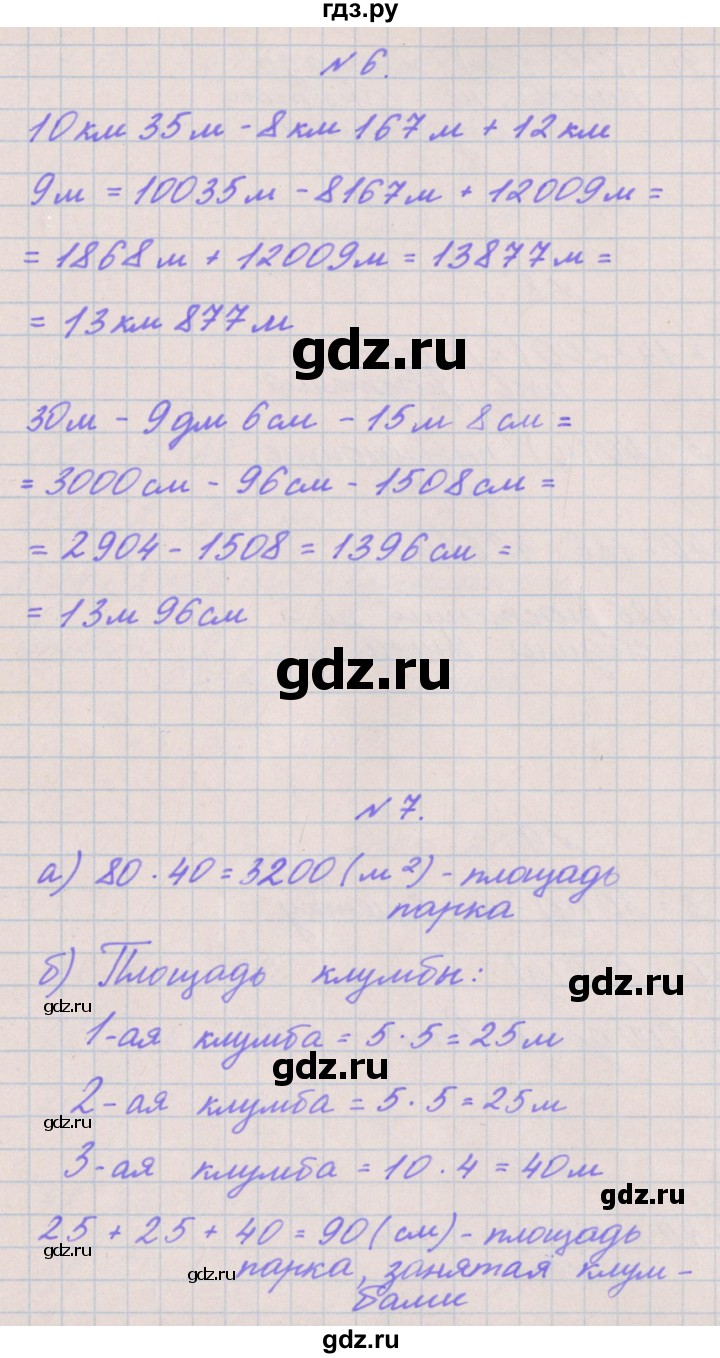 гдз.ру
N 6.
10 км 35 м - 8 км 167 м + 12 км
9 м = 10035 м - 8167 м + 12009 м =
= 1868 м + 12009 м = 13877 м =
= 13 км 877 м
gdz.ru
30 м - 9 дм 6 см - 15 м 8 см =
= 3000 см - 96 см - 1508 см =
= 2904 - 1508 = 1396 см =
= 13 м 96 см
gdz.ru
N 7.
а) 80 · 40 = 3200 (м²) - площадь
парка
б) Площадь клумбы:
gdz.ru
gdz.ru
1-ая клумба = 5 · 5 = 25 м
gdz.ru
2-ая клумба = 5 · 5 = 25 м
gdz.ru
3-ая клумба = 10 · 4 = 40 м
gdz.ru
25 + 25 + 40 = 90 (см) - площадь
gdz.ru
gdz.ru
парка, занятая клум-
бами
gdz.ru